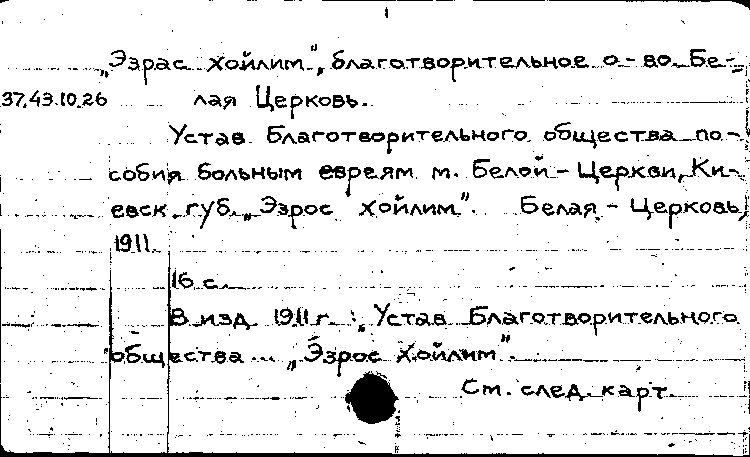 „Эзрас хойлим", благотворительное о-во. Бе-
37.43.10.26 лая Церковь.
Устав Благотворительного общества по-
собия больным евреям м. Белой-Церкви, Ки-
евск. губ. „Эзрос хойлим". Белая-Церковь,
1911.
16 с.
В изд. 1911 г.: „Устав Благотворительного
общества... „Эзрос Хойлим".
См. след. карт.